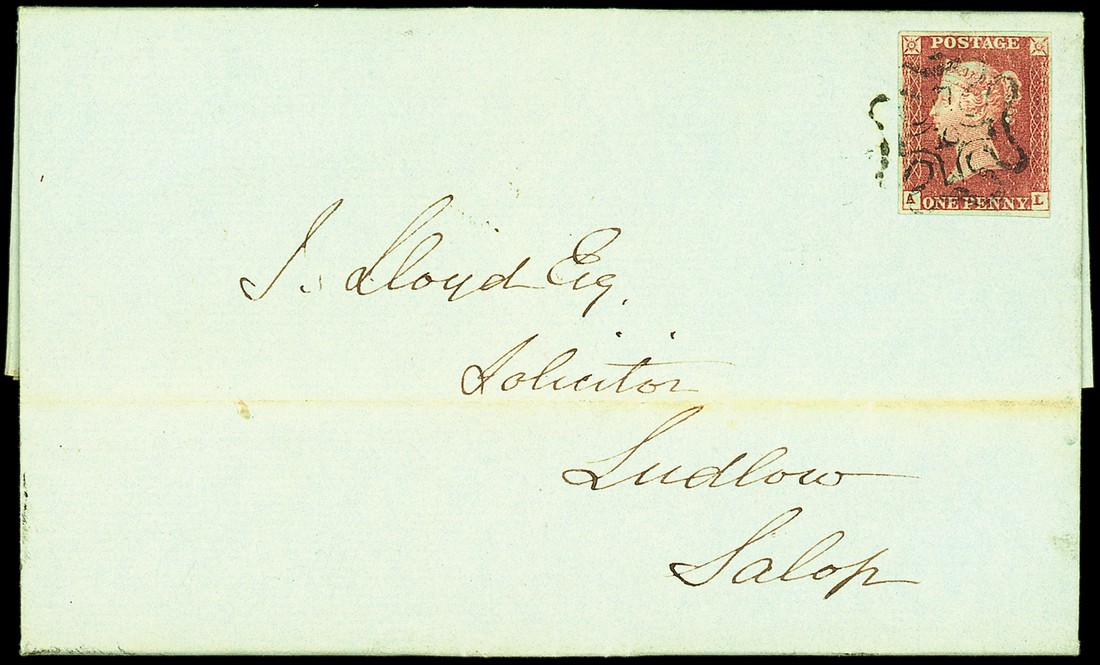 POSTAGE
A ONE PENNY L
J. Lloyd Esq.
Solicitor
Ludlow
Salop